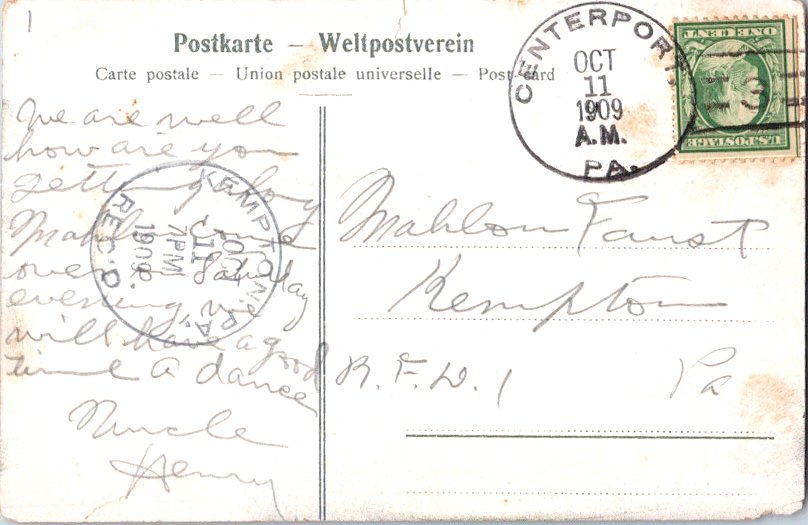 1
Postkarte – Weltpostverein
Carte postale – Union postale universelle – Post-card
CENTERPORT
OCT
11
1909
A.M.
PA.
ONE CENT
U.S.POSTAGE
3
We are well
how are you
getting along
Mahlon come
over on Saturday
evening, we
will have a good
time a dance
Nuncle
Henry
KEMPTON, PA.
OCT
11
7PM
1909
REC'D.
Mahlon Faust
Kempton
R. F. D. 1 Pa